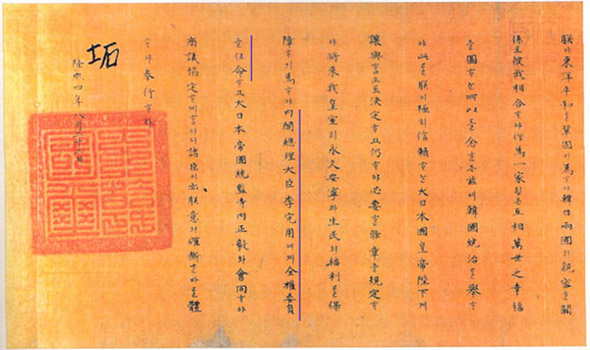 朕이東洋平和를鞏固히爲ᄒᆞ야韓日兩國의親密ᄒᆞᆫ關
係로彼我相合ᄒᆞ야作爲一家ᄒᆞᆷ은互相萬世之幸福
을圖ᄒᆞᄂᆞᆫ所以를念ᄒᆞᆫ즉玆에韓國統治를擧ᄒᆞ
야此를朕이極히信賴ᄒᆞᄂᆞᆫ大日本國皇帝陛下에
讓與ᄒᆞ기로決定ᄒᆞ고仍ᄒᆞ야必要ᄒᆞᆫ條章을規定ᄒᆞ
야將來我皇室의永久安寧과生民의福利를保
障ᄒᆞ기爲ᄒᆞ야內閣總理大臣李完用에게全權委員
을任命ᄒᆞ고大日本帝國統監寺內正毅와會同ᄒᆞ야
商議協定케ᄒᆞ노니諸臣이亦朕意의確斷ᄒᆞᆫ바를體
ᄒᆞ야奉行ᄒᆞ라
隆熙四年八月二十二日
坧